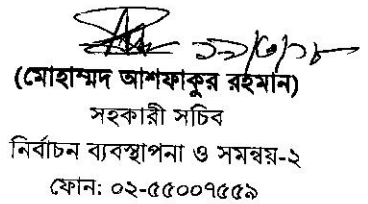 ১১/৩/১৮
(মোহাম্মদ আশফাকুর রহমান)
সহকারী সচিব
নির্বাচন ব্যবস্থাপনা ও সমন্বয়-২
ফোন: ০২-৫৫০০৭৫৫৯